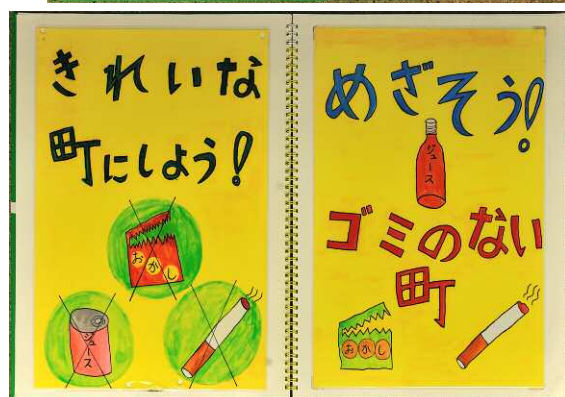 きれいな
町にしよう!
おかし
ジュース
めざそう!
ジュース
ゴミのない
町
おかし